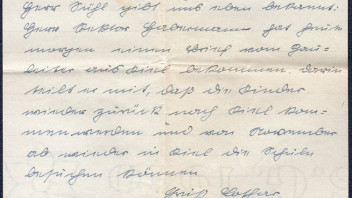 Herr Kühl gibt uns eben bekannt:
Herr Rektor Habermann hat heute
morgen einen Brief vom Gau-
leiter aus Kiel bekommen, darin
teilt er mit, daß die Kinder
wieder zurück nach Kiel kom-
men werden und von November
ab wieder in Kiel die Schule
besuchen können
Gruß Lothar